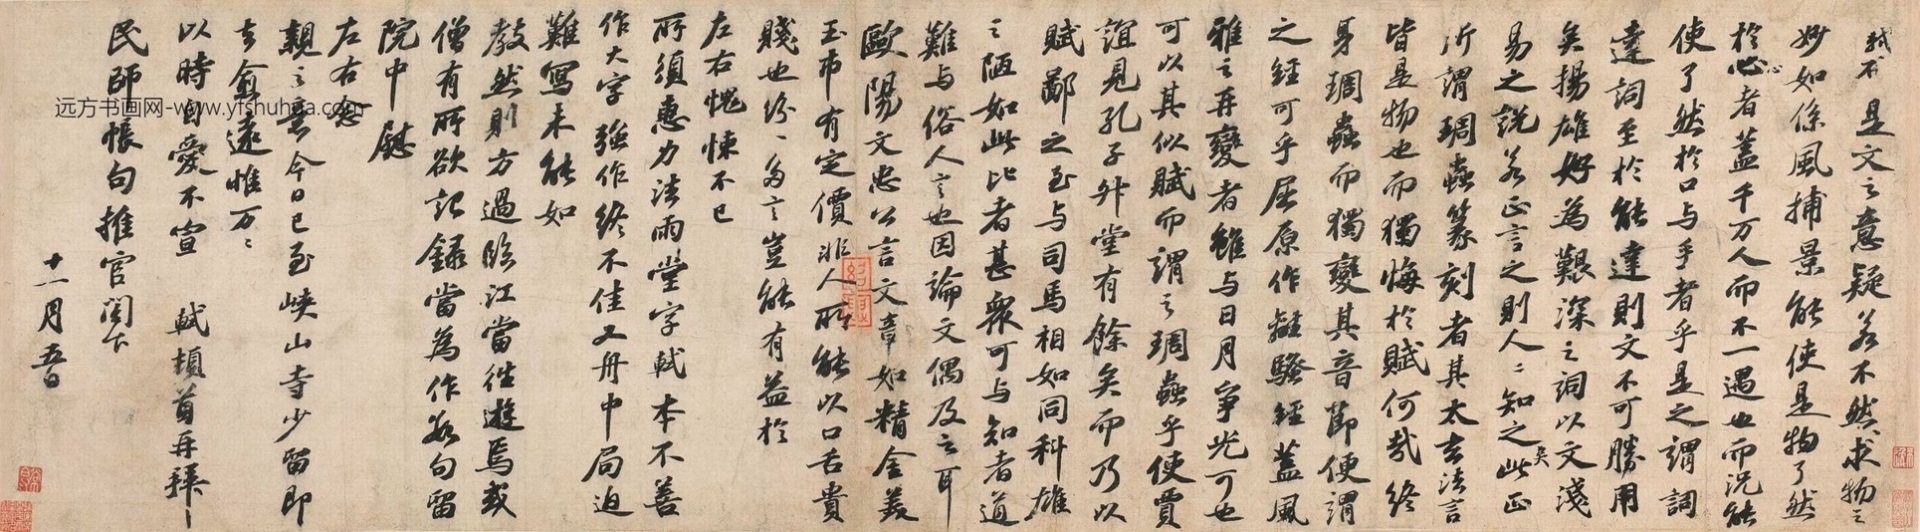 是文之意疑若不然求物之
妙如係風捕景能使是物了然
於心者蓋千万人而不一遇也而況能
使了然於口与手者乎是之謂詞
達詞至於能達則文不可勝用
矣揚雄好為艱深之詞以文淺
易之說若正言之則人〻知之矣此正
所謂琱蟲篆刻者其太玄法言
皆是物也而獨悔於賦何哉終
身琱蟲而獨變其音節便謂
之經可乎屈原作離騷經蓋風
雅之再變者雖与日月爭光可也
可以其似賦而謂之琱蟲乎使賈
誼見孔子升堂有餘矣而乃以
賦鄙之至与司馬相如同科雄
之陋如此比者甚衆可与知者道
難与俗人言也因論文偶及之耳
歐陽文忠公言文章如精金美
玉市有定價非人所能以口舌貴
賤也紛〻多言豈能有益於
左右愧悚不已
所須惠力法雨堂字軾本不善
作大字強作終不佳又舟中局迫
難寫未能如
教然則方過臨江當往遊焉或
僧有所欲記錄當為作數句留
院中慰
左右念
親之意今日已至峽山寺少留即
去愈遠惟万〻
以時自愛不宣 軾頓首再拜
民師帳句推官閣下
十一月五日
远方书画网-www.yfshuhua.com